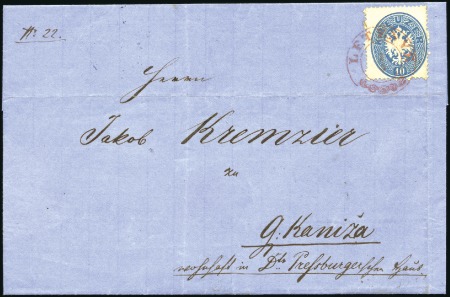 No. 22.
LE
10
Herrn
Jakob Kremzier
zu
G. Kaniža
wohnhaft in Dts Preßburger'schen Haus